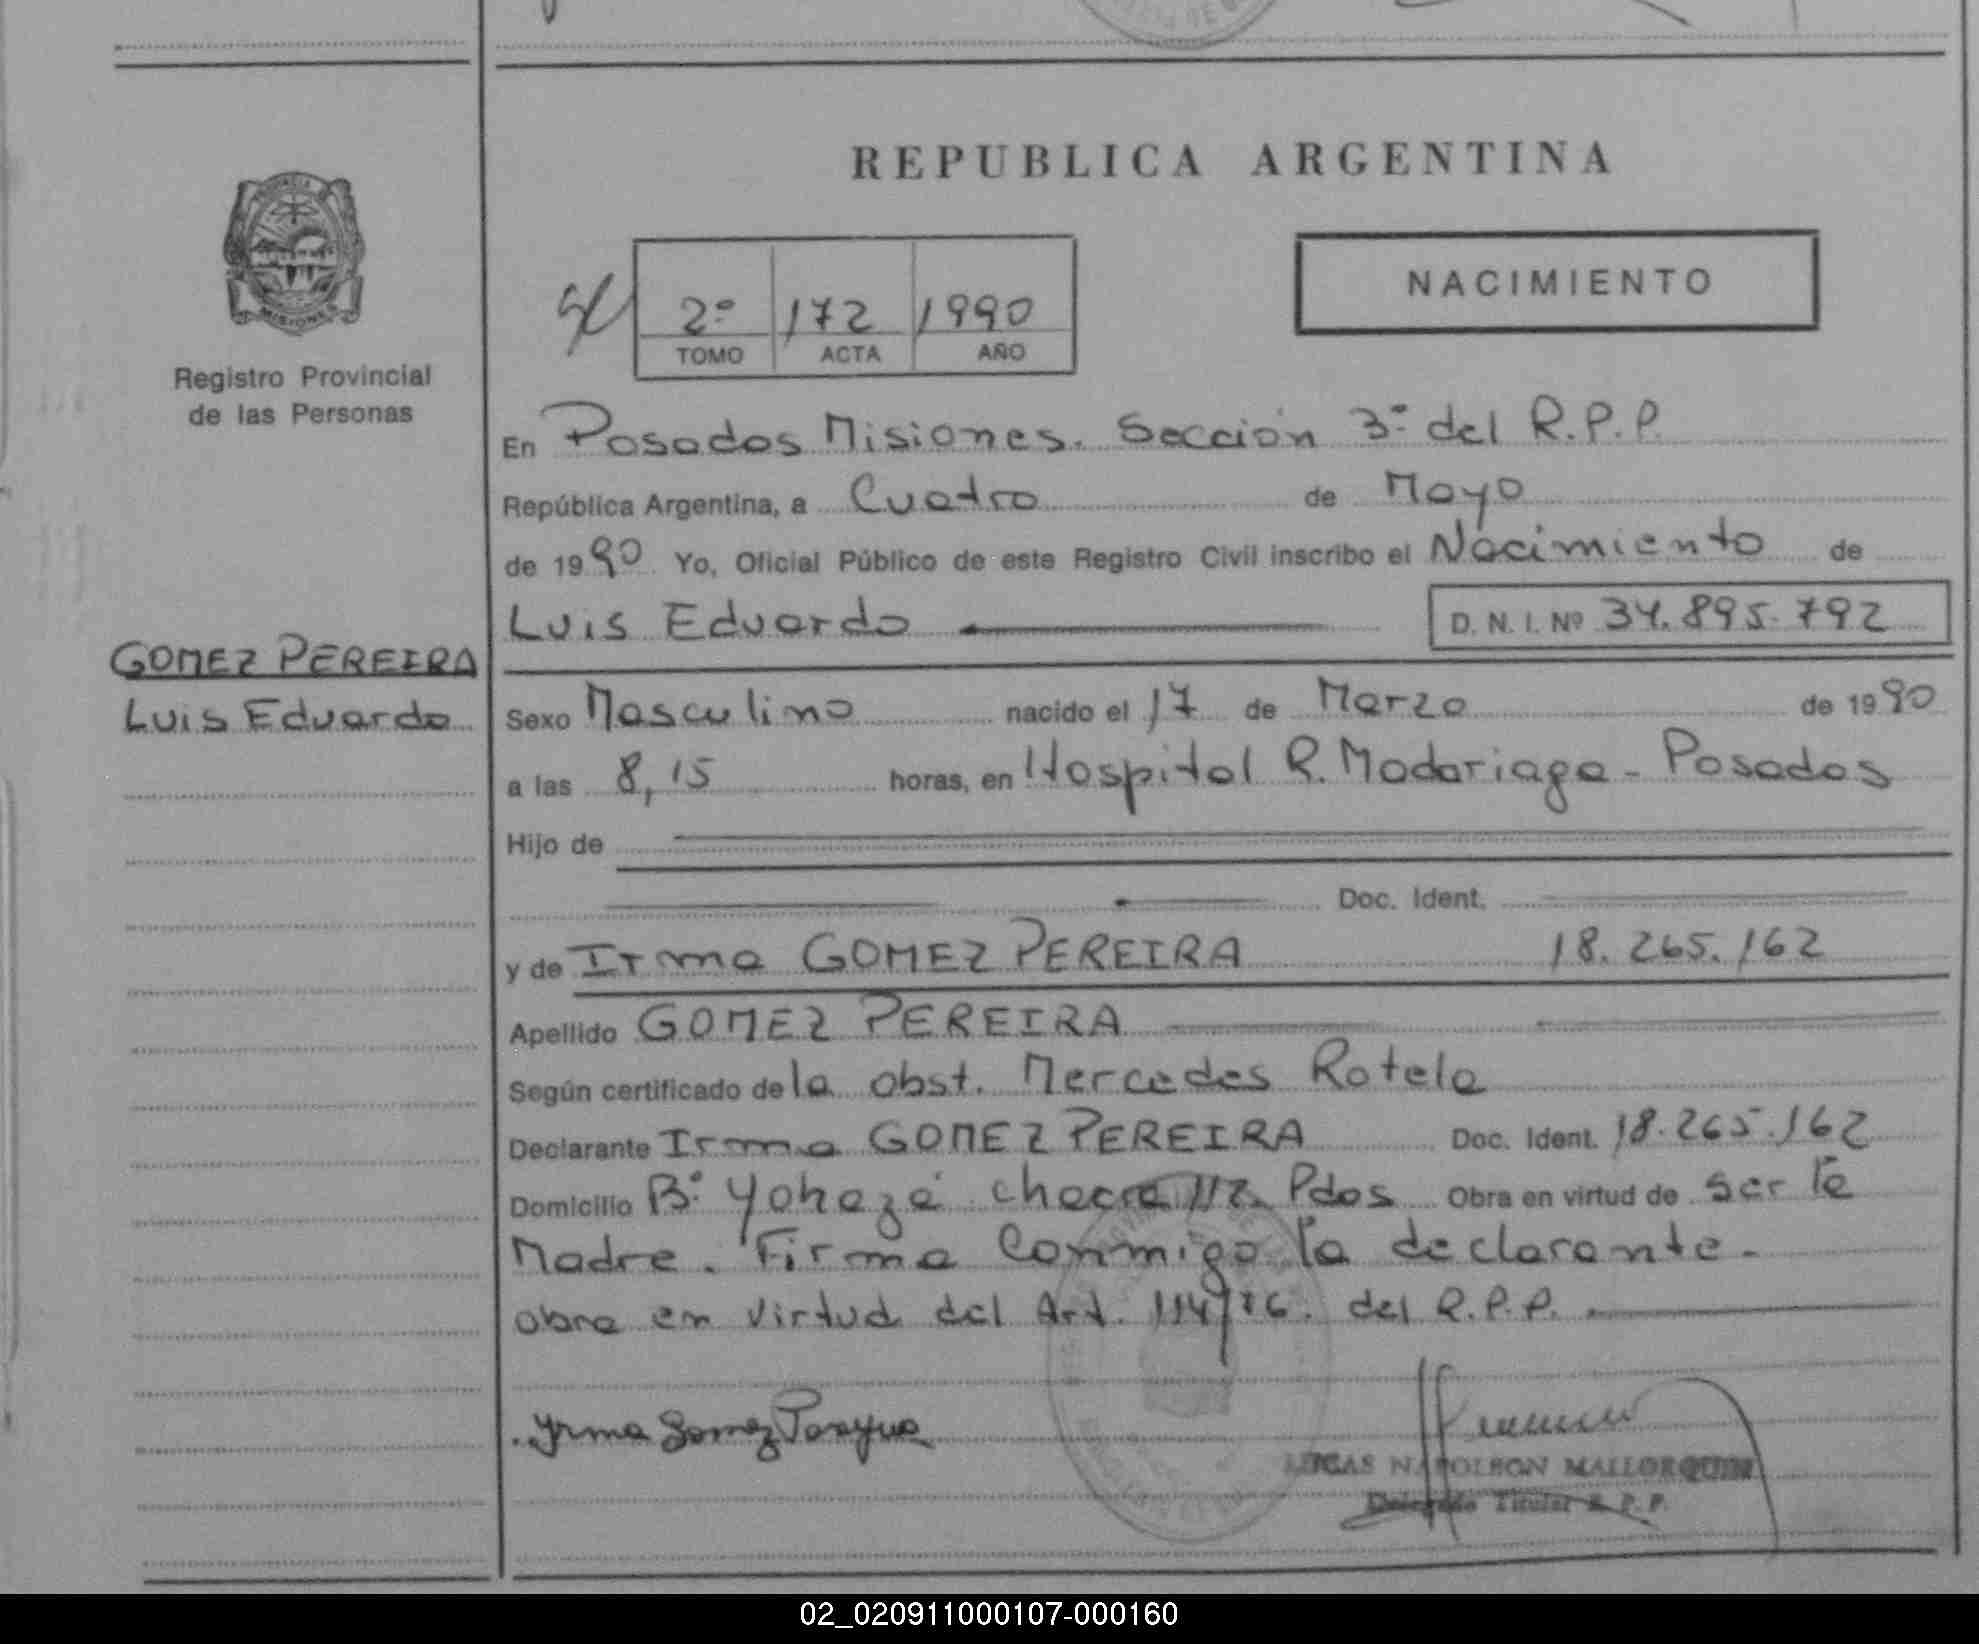 REPUBLICA ARGENTINA
PROVINCIA
MISIONES
Registro Provincial
de las Personas
2º 172 1990
TOMO ACTA AÑO
NACIMIENTO
En Posadas Misiones. Sección 3º del R.P.P.
República Argentina, a Cuatro de Mayo
de 1990 Yo, Oficial Público de este Registro Civil inscribo el Nacimiento de
Luis Eduardo D. N. I. Nº 34.895.792
GOMEZ PEREIRA
Luis Eduardo
Sexo Masculino nacido el 17 de Marzo de 1990
a las 8,15 horas, en Hospital R. Madariaga - Posadas
Hijo de
Doc. Ident.
y de Irma GOMEZ PEREIRA 18.265.162
Apellido GOMEZ PEREIRA
Según certificado de la obst. Mercedes Rotela
Declarante Irma GOMEZ PEREIRA Doc. Ident. 18.265.162
Domicilio Bº Yohazá chacra 112. Pdas Obra en virtud de ser la
Madre. Firma Conmigo la declarante -
obra en virtud del Art. 114/76. del R.P.P.
Yrma Gomez
LUCAS NAPOLEON MALLORQUIN
Delegado Titular R. P. P.
02_020911000107-000160